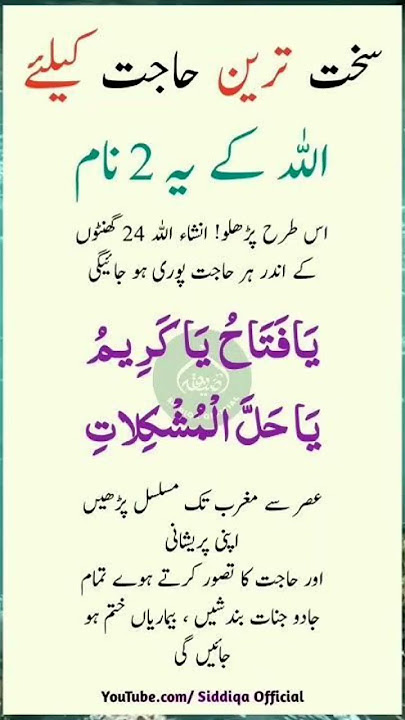 سخت ترین حاجت کیلئے
اللہ کے یہ 2 نام
اس طرح پڑھلو! انشاء اللہ 24 گھنٹوں
کے اندر ہر حاجت پوری ہو جائیگی
يَا فَتَاحُ يَا كَرِيمُ
يَا حَلَّ الْمُشْكِلاتِ
عصر سے مغرب تک مسلسل پڑھیں
اپنی پریشانی
اور حاجت کا تصور کرتے ہوے تمام
جادو جنات بندشیں ، بیماریاں ختم ہو
جائیں گی
YouTube.com/ Siddiqa Official